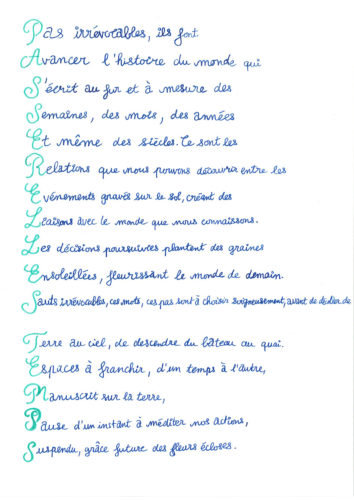 Pas irrévocables, ils font
Avancer l'histoire du monde qui
S'écrit au fur et à mesure des
Semaines, des mois, des années
Et même des siècles. Ce sont les
Relations que nous pouvons découvrir entre les
Evénements gravés sur le sol, créant des
Liaisons avec le monde que nous connaissons.
Les décisions poursuivies plantent des graines
Ensoleillées, fleurissant le monde de demain.
Sauts irrévocables, ces mots, ces pas sont à choisir soigneusement, avant de décider de
Terre au ciel, de descendre du bâteau au quai.
Espaces à franchir, d'un temps à l'autre,
Manuscrit sur la terre,
Pause d'un instant à méditer nos actions,
Suspendu, grâce future des fleurs écloses.